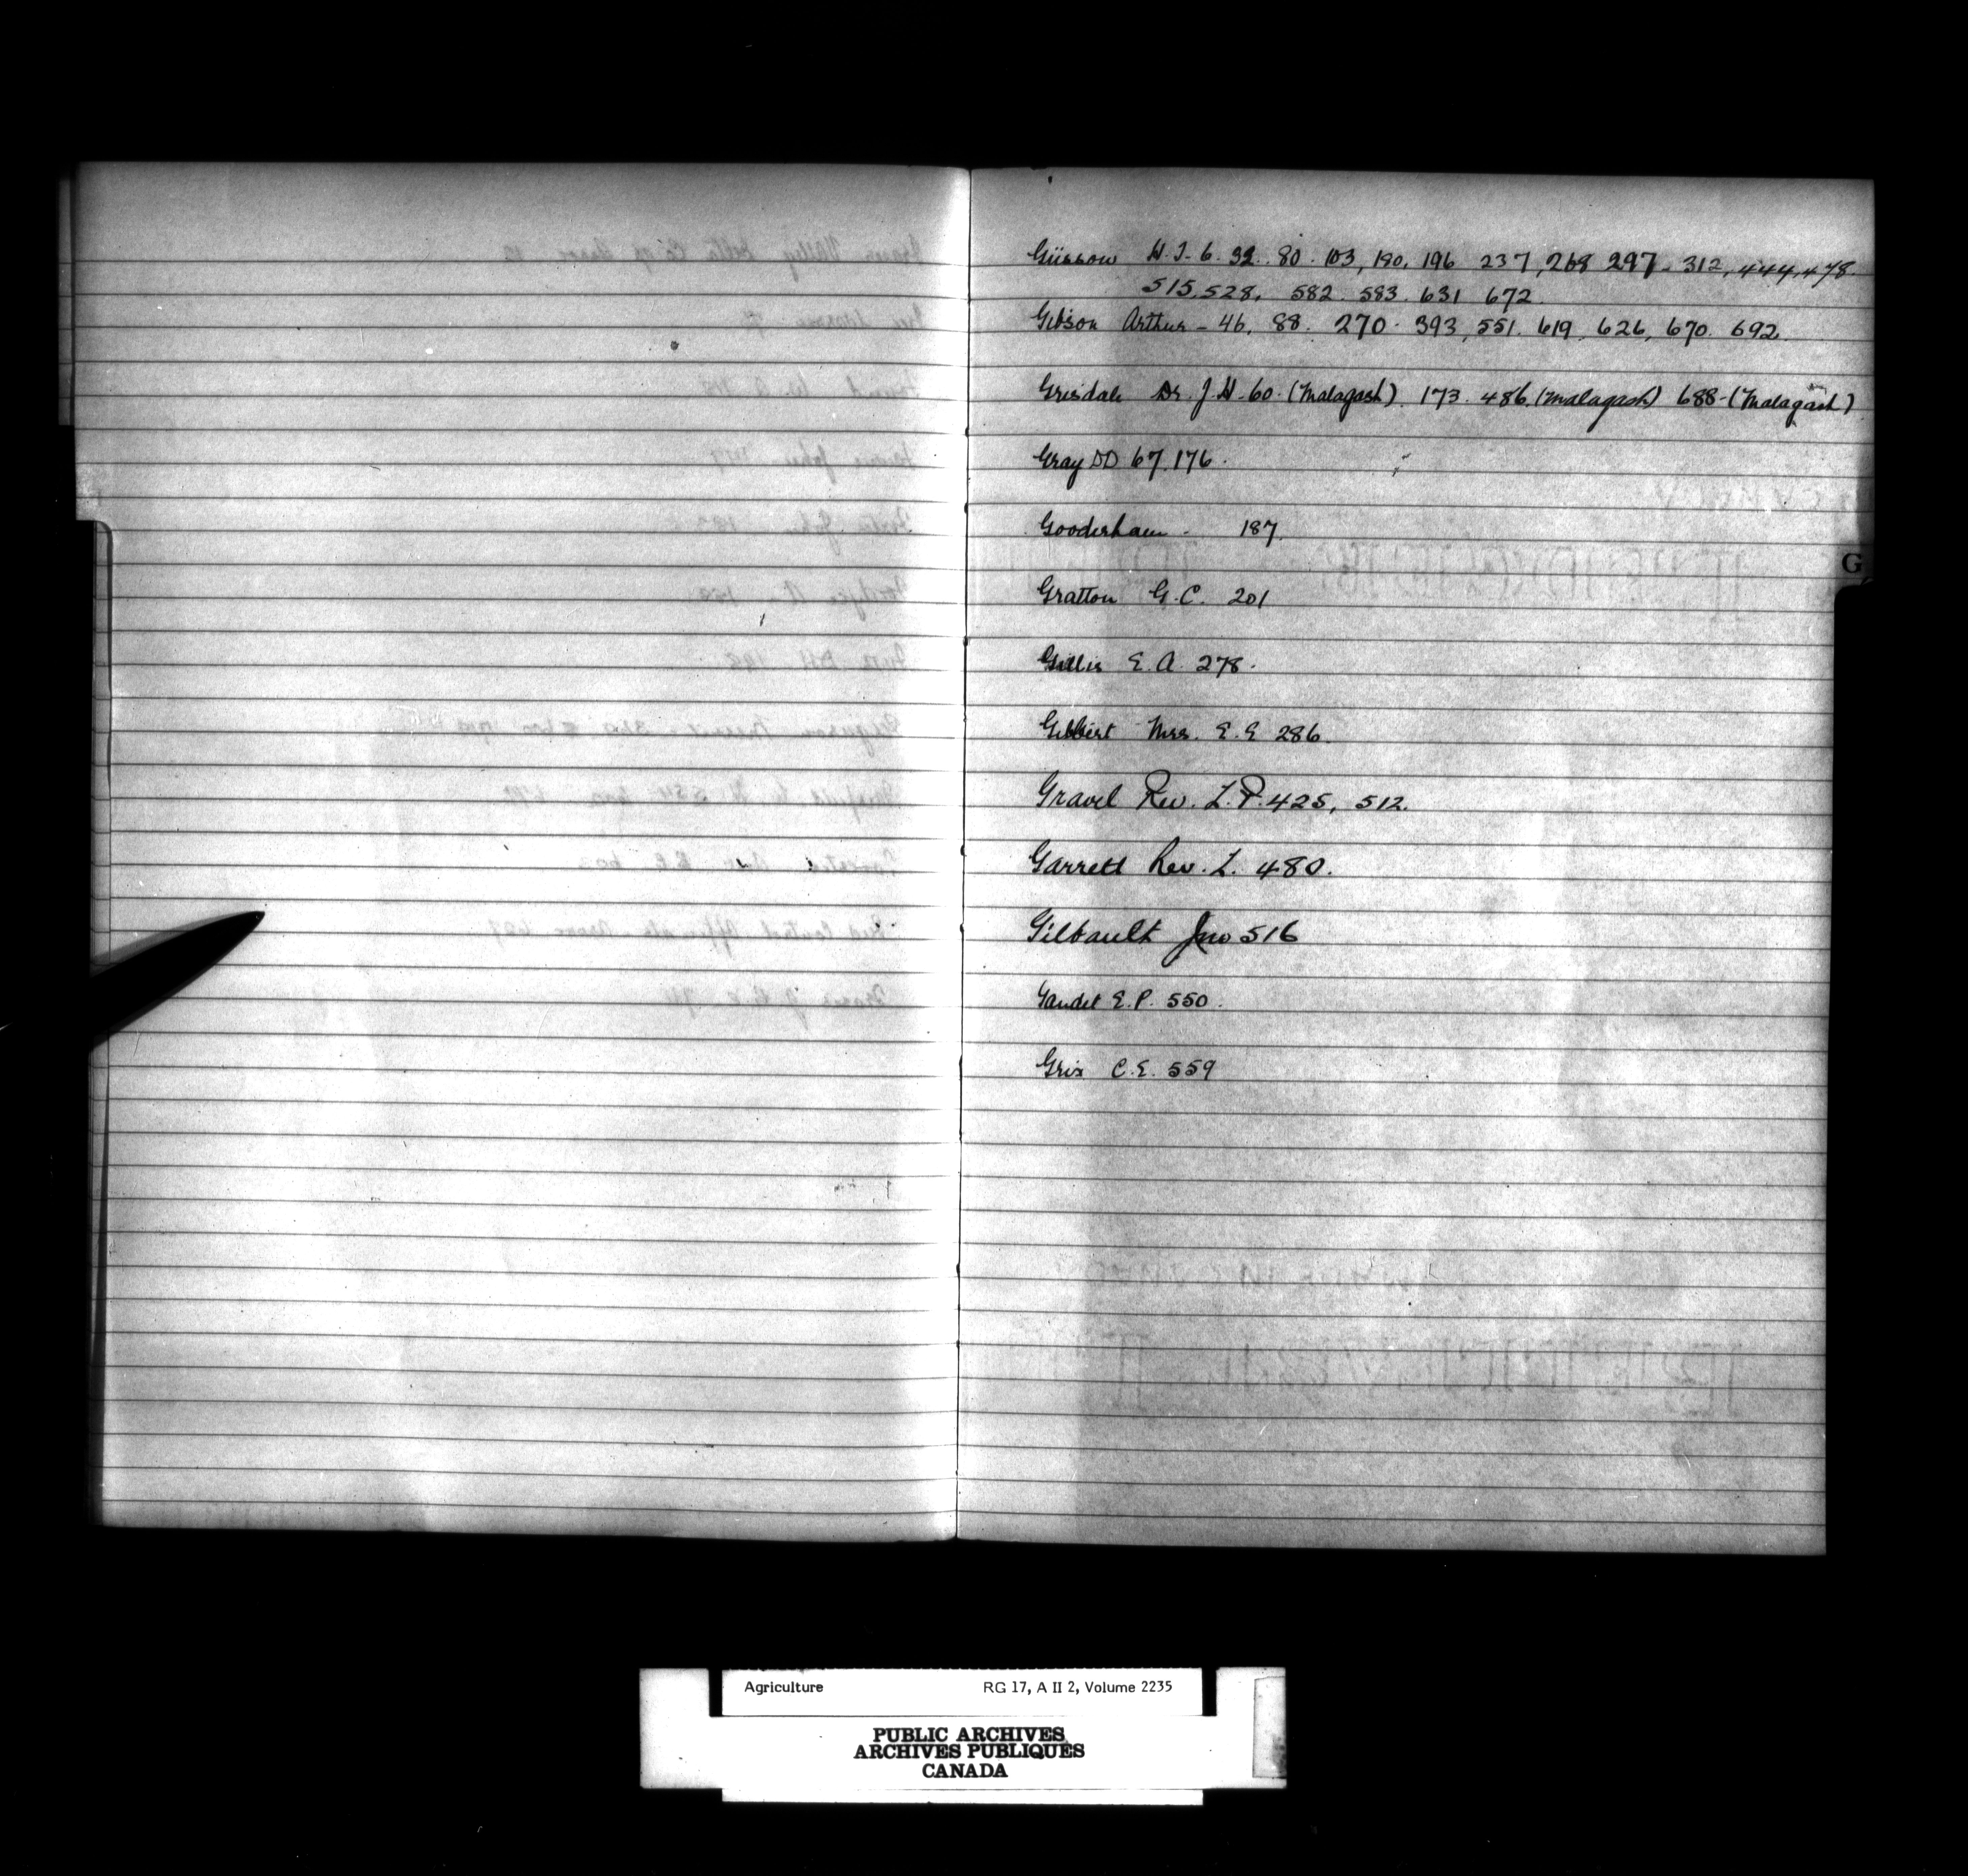 Güssow H.T. 6. 32. 80. 103, 190, 196 237, 268 297 - 312, 444, 478.
515, 528, 582. 583. 631 672.
Gibson Arthur - 46, 88. 270. 393, 551. 619, 626, 670. 692.
Grisdale Dr. J.H. 60. (Malagash). 173. 486. (Malagash) 688-(Malagash)
Gray DD 67. 176.
Gooderham - 187.
G
Gratton G.C. 201
Gillis E.A. 278.
Gilbert Mrs. E.E 286.
Gravel Rev. L.P. 425, 512.
Garrett Rev. L. 480.
Gilbault Jno 516
Gaudet E.P. 550.
Grix C.E. 559
Agriculture RG 17, A II 2, Volume 2235
PUBLIC ARCHIVES
ARCHIVES PUBLIQUES
CANADA